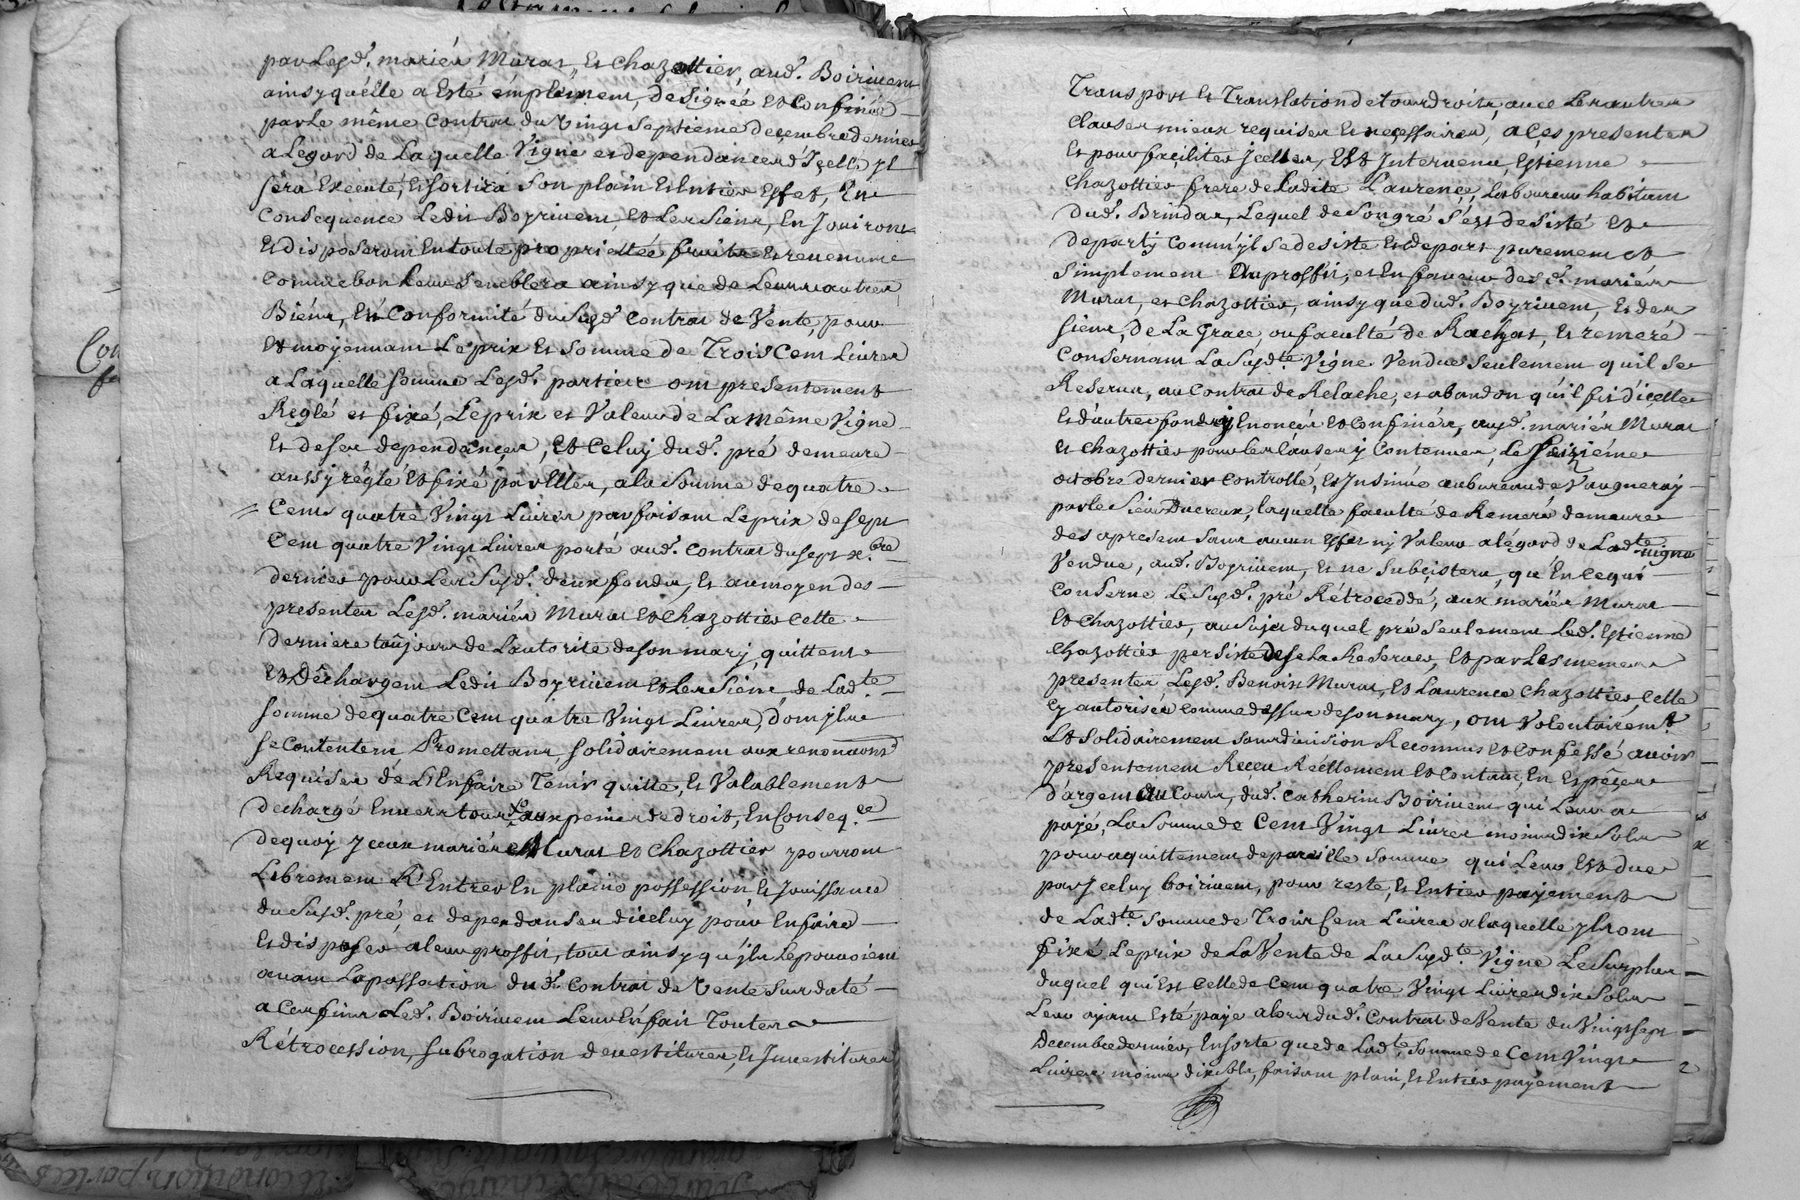 par Lesd. mariés Murat, et Chazottier, aud. Boirivent
ainsy qu'elle a Esté émplement, designée et Confinée
par Le même Contrat du Vingt Septieme decembre dernier
a Legard de Laquelle Vigne et dependances d'Icelle Jl
sera Exécuté, Et sortira Son plain Et Entier Effet, En
Consequence Ledit Boyrivent, et Les Siens, En Jouiront
Et disposeront En toute proprietté fruits Et revenus
comme bon Leur Semblera ainsy que de Leurs autres
Biéns, En Conformité du Susd. Contrat de Vente, pour
et moyennant Le prix Et Somme de Trois Cent Livres
a Laquelle Somme Lesd. parties ont presentement
Reglé et fixé, Le prix et Valeur de La même Vigne
Et de ses dependances, et Celuy dud. pré demeure
aussy réglé et fixé par Elles, a la Somme de quatre
Cents quatre Vingt Livres parfaisant Le prix de Sept
Cent quatre Vingt Livres porté aud. Contrat du sept xbre
dernier pour Les Susd. deux fonds, Et au moyen des
presentes Lesd. mariés Murat et Chazottier Cette
derniere toûjours de L'autorité de son mary, quittent
et Déchargent Ledit Boyrivent et Les Siens de Ladte
somme de quatre Cent quatre Vingt Livres, dont jls
se Contentent Promettant, solidairement aux renonciaons
Requises de L'En faire Tenir quitte, Et Valablement
dechargé Envers tous aux peines de droit, En Conseqce
de quoy Jceux mariés Murat et Chazottier pourront
Librement R'Entrer En plaine possession Et Jouissance
du Susd. pré, et dependances diceluy pour En faire
Et disposer a leur proffit, tout ainsy qu'jls Le pouvoient
avant La passation dud. Contrat de Vente Sus daté
a Ces fins Led. Boirivent Leur En fait Toutes
Rétrocession, Subrogation devestitures, et Jnvestitures
Transport Et Translation de tous droits, avec Les autres
Clauses mieux requises Et necessaires, a Ces presentes
Et pour faciliter Jcelles, Est Intervenu, Estienne
Chazottier frere de Ladite Laurence, Laboureur habitant
dud. Brindas, Lequel de Son gré s'est desisté et
departy Comm'jl Se desiste Et depart purement et
Simplement Au proffit, et En faveur desd. mariés
Murat, et Chazottier, ainsy que dud. Boyrivent, Et des
siens, de La Grace, ou faculté de Rachat, Et remeré
Consernant La Susdte. Vigne Vendue Seulement qu'il se
Reserva, au Contrat de Relache, et abandon qu'il fit d'icelle
Et d'autres fonds y Enoncés et Confinés, aux d. mariés Murat
et Chazottier pour Les Causes y Contenues, Le Seiziéme
octobre dernier Controllé, Et Jnsinué au bureau de Vaugneray
par le Sieur Ducreux, laquelle faculté de Remeré demeure
des apresent Sans aucun effet ny Valeur a légard de Ladte. vigne
Vendue, aud. Boyrivent, Et ne Subçistera, qu'En Ce qui
Conserne Le Susd. pré Rétroceddé, aux mariés Murat
et Chazottier, au Sujet duquel pré Seulement Led. Estienne
Chazottier persiste de se La Reserver, et par Les mêmes
presentes Lesd. Benoist Murat, et Laurence Chazottier, Celle
Cy autorisée comme dessus de son mary, ont Volontairemt.
Et Solidairement Sans division Reconnus et Confessé avoir
presentement Receu Réellement et Contant, En Espêces
d'argent au Cours, dud. Catherin Boirivent qui Leur a
payé, La Somme de Cent Vingt Livres moins dix Sols
pour aquittement de pareille Somme qui Leur est due
par Jceluy boirivent, pour reste, Et Entier payement
de Ladte. Somme de Trois Cent Livres a laquelle jls ont
fixé Le prix de La Vente de La Susdte. Vigne Le Surplus
duquel qui Est Celle de Cent quatre Vingt Livres dix Sols
Leur ayant Esté paye alors dud. Contrat de Vente du Vingt sept
Decembre dernier, En Sorte que de Ladte. Somme de Cent Vingt
Livres moins dix Sols, faisant plain, Et Entier payement